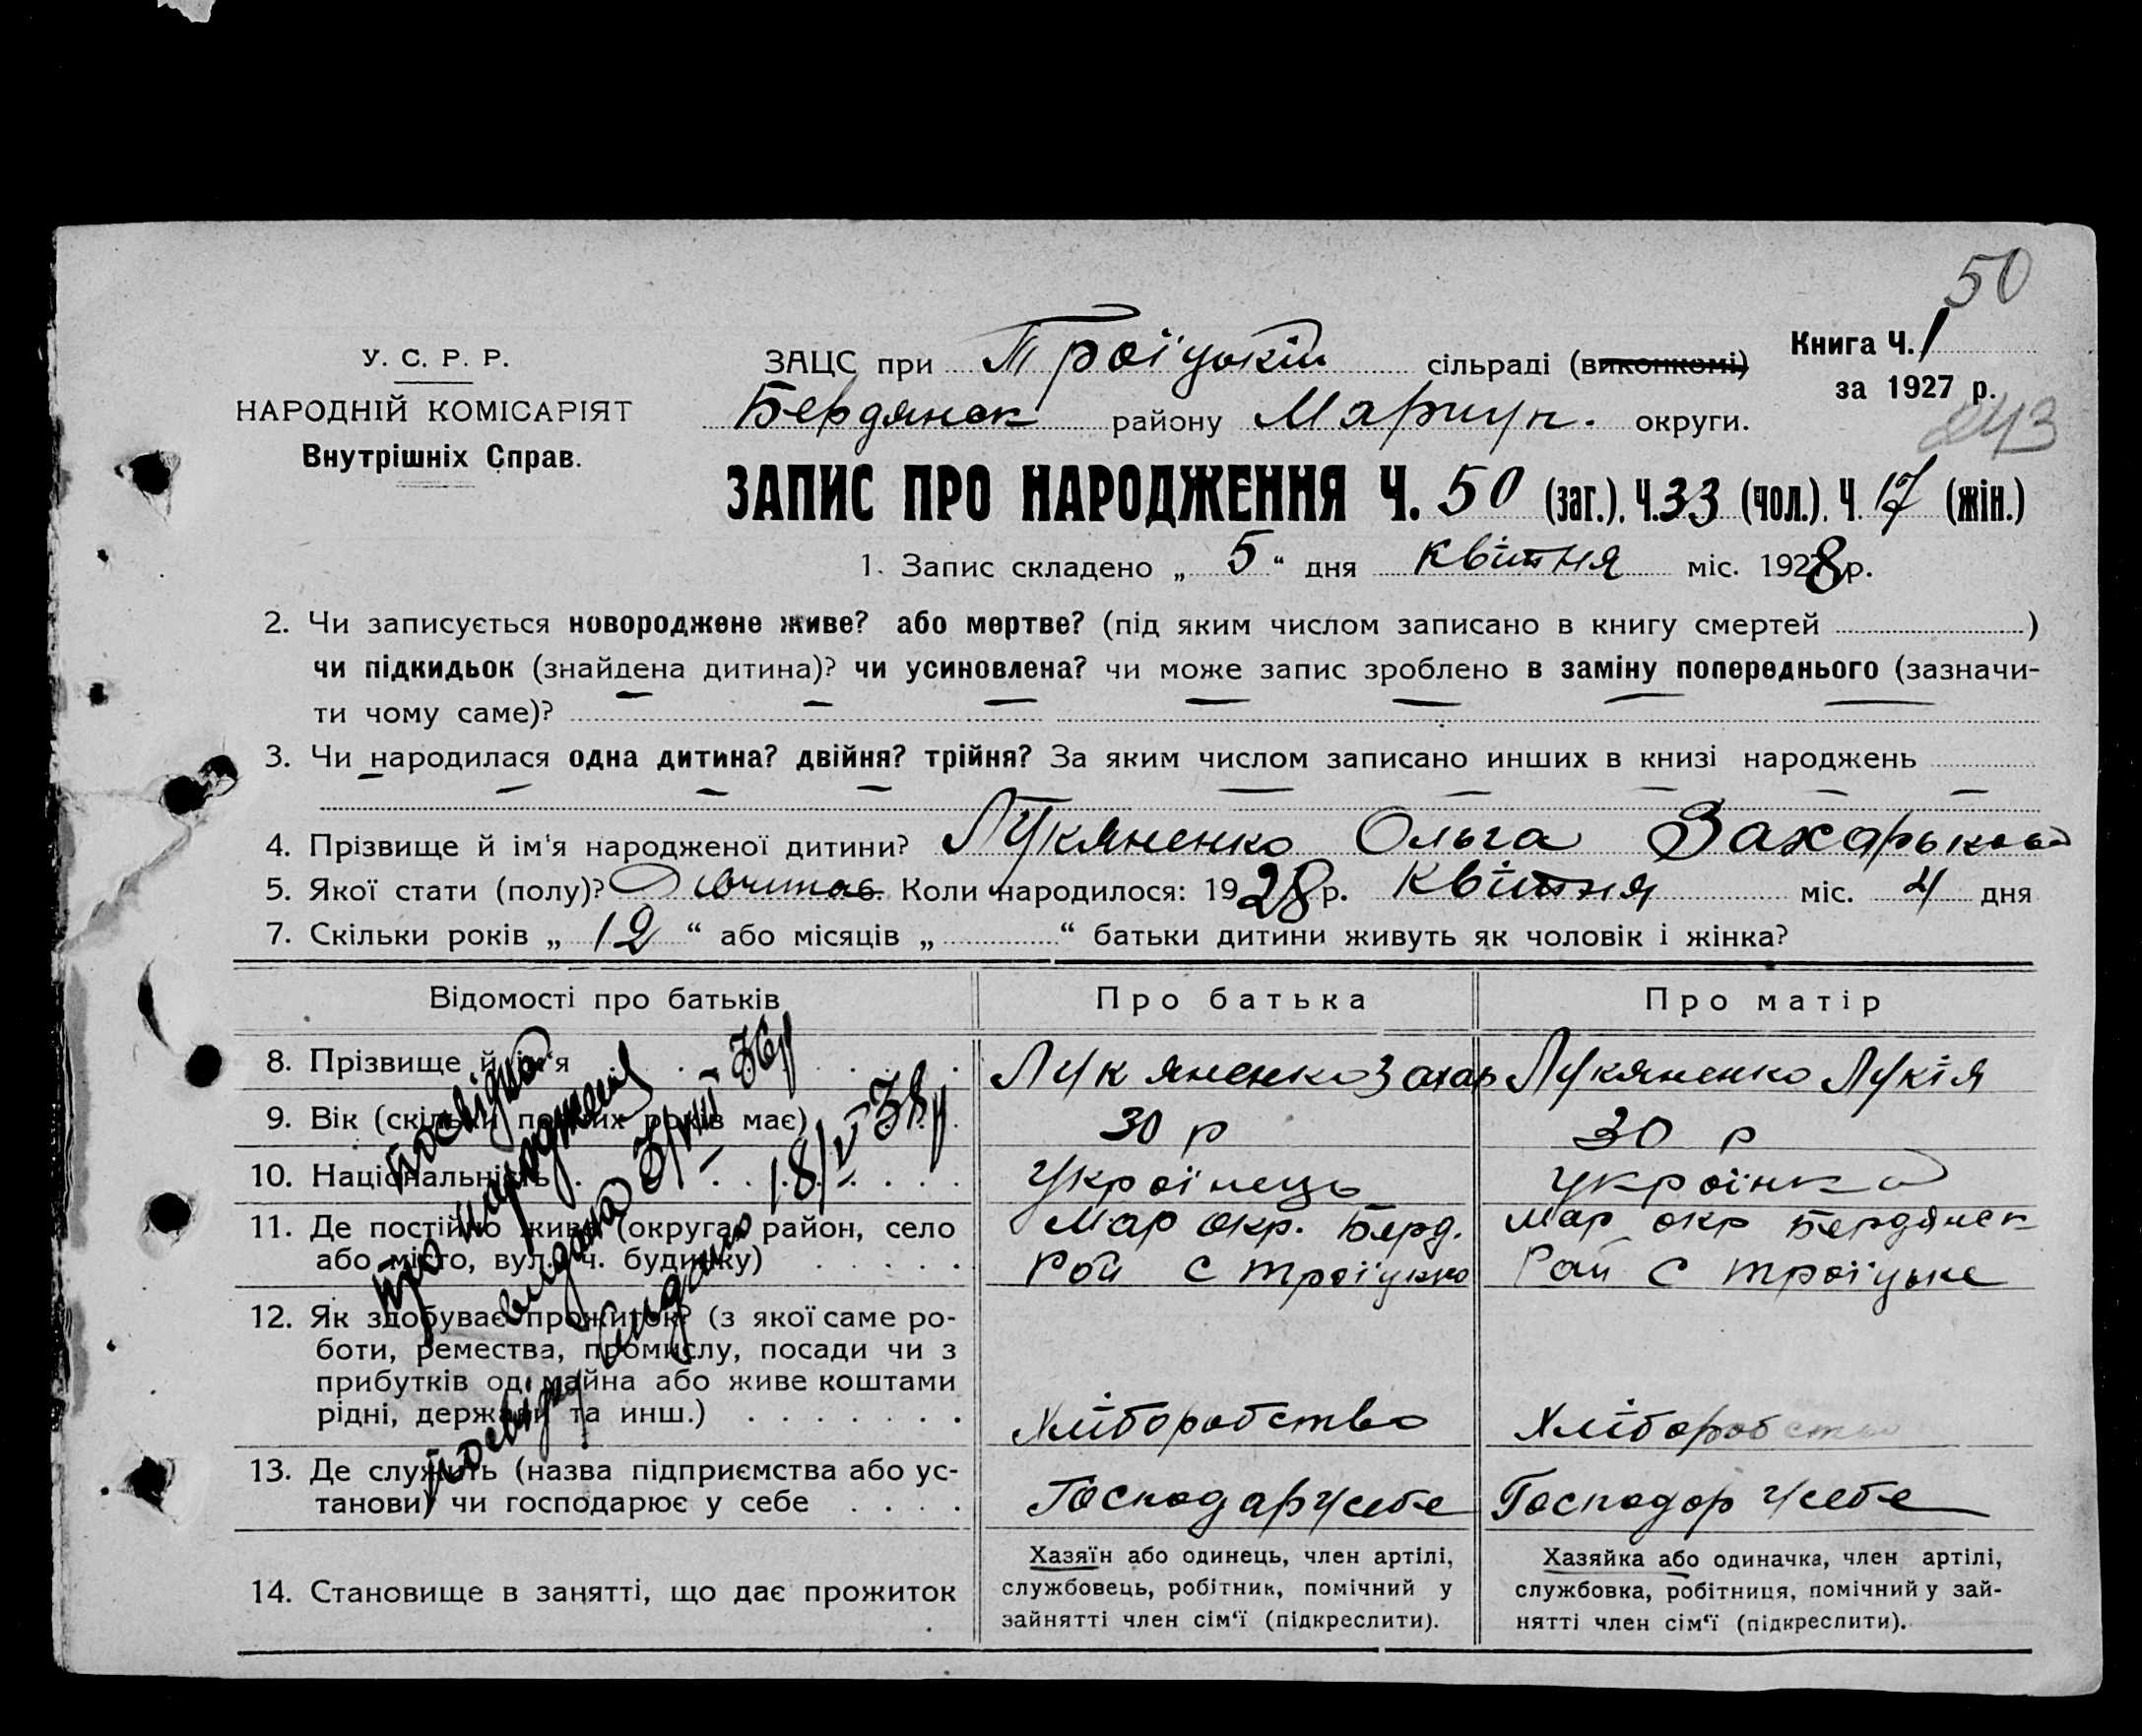 50
У. С. Р. Р.
НАРОДНІЙ КОМІСАРІЯТ
Внутрішніх Справ.
ЗАЦС при Троїцькій сільраді (виконкомі)
Книга Ч. 1
за 1927 р.
Бердянск району Маріуп. округи.
243
ЗАПИС ПРО НАРОДЖЕННЯ Ч. 50 (заг.), Ч. 33 (чол.), Ч. 17 (жін.)
1. Запис складено „ 5 “ дня квітня міс. 1928 р.
2. Чи записується новороджене живе? або мертве? (під яким числом записано в книгу смертей )
чи підкидьок (знайдена дитина)? чи усиновлена? чи може запис зроблено в заміну попереднього (зазначи-
ти чому саме)?
3. Чи народилася одна дитина? двійня? трійня? За яким числом записано инших в книзі народжень
4. Прізвище й ім‘я народженої дитини? Лукяненко Ольга
5. Якої стати (полу)? 6. Коли народилося: 1928 р. Квітня міс. 4 дня
7. Скільки років „ 12 “ або місяців „ “ батьки дитини живуть як чоловік і жінка?
Відомості про батьків
Про батька
Про матір
8. Прізвище й ім‘я
Лукяненко Захар
Лукяненко Лукія
9. Вік (скільки повних років має)
30 р
30 р
10. Національність
Українець
Українка
11. Де постійно живе (округа, район, село
або місто, вул. ч. будинку)
Мар окр. Берд.
Рай с Троїцьке
Мар окр Бердянск
Рай с Троїцьке
12. Як здобуває прожиток? (з якої саме ро-
боти, ремества, промислу, посади чи з
прибутків од майна або живе коштами
рідні, держави та инш.)
Хліборобство
Хліборобство
13. Де служить (назва підприємства або ус-
танови) чи господарює у себе
Господар у себе
Господар у себе
14. Становище в занятті, що дає прожиток
Хазяїн або одинець, член артілі,
службовець, робітник, помічний у
зайнятті член сім‘ї (підкреслити).
Хазяйка або одиначка, член артілі,
службовка, робітниця, помічний у зай-
нятті член сім‘ї (підкреслити).
Посвідка
про народження
видана 3/VIII 36р
Посвідку видано 18/V 38р